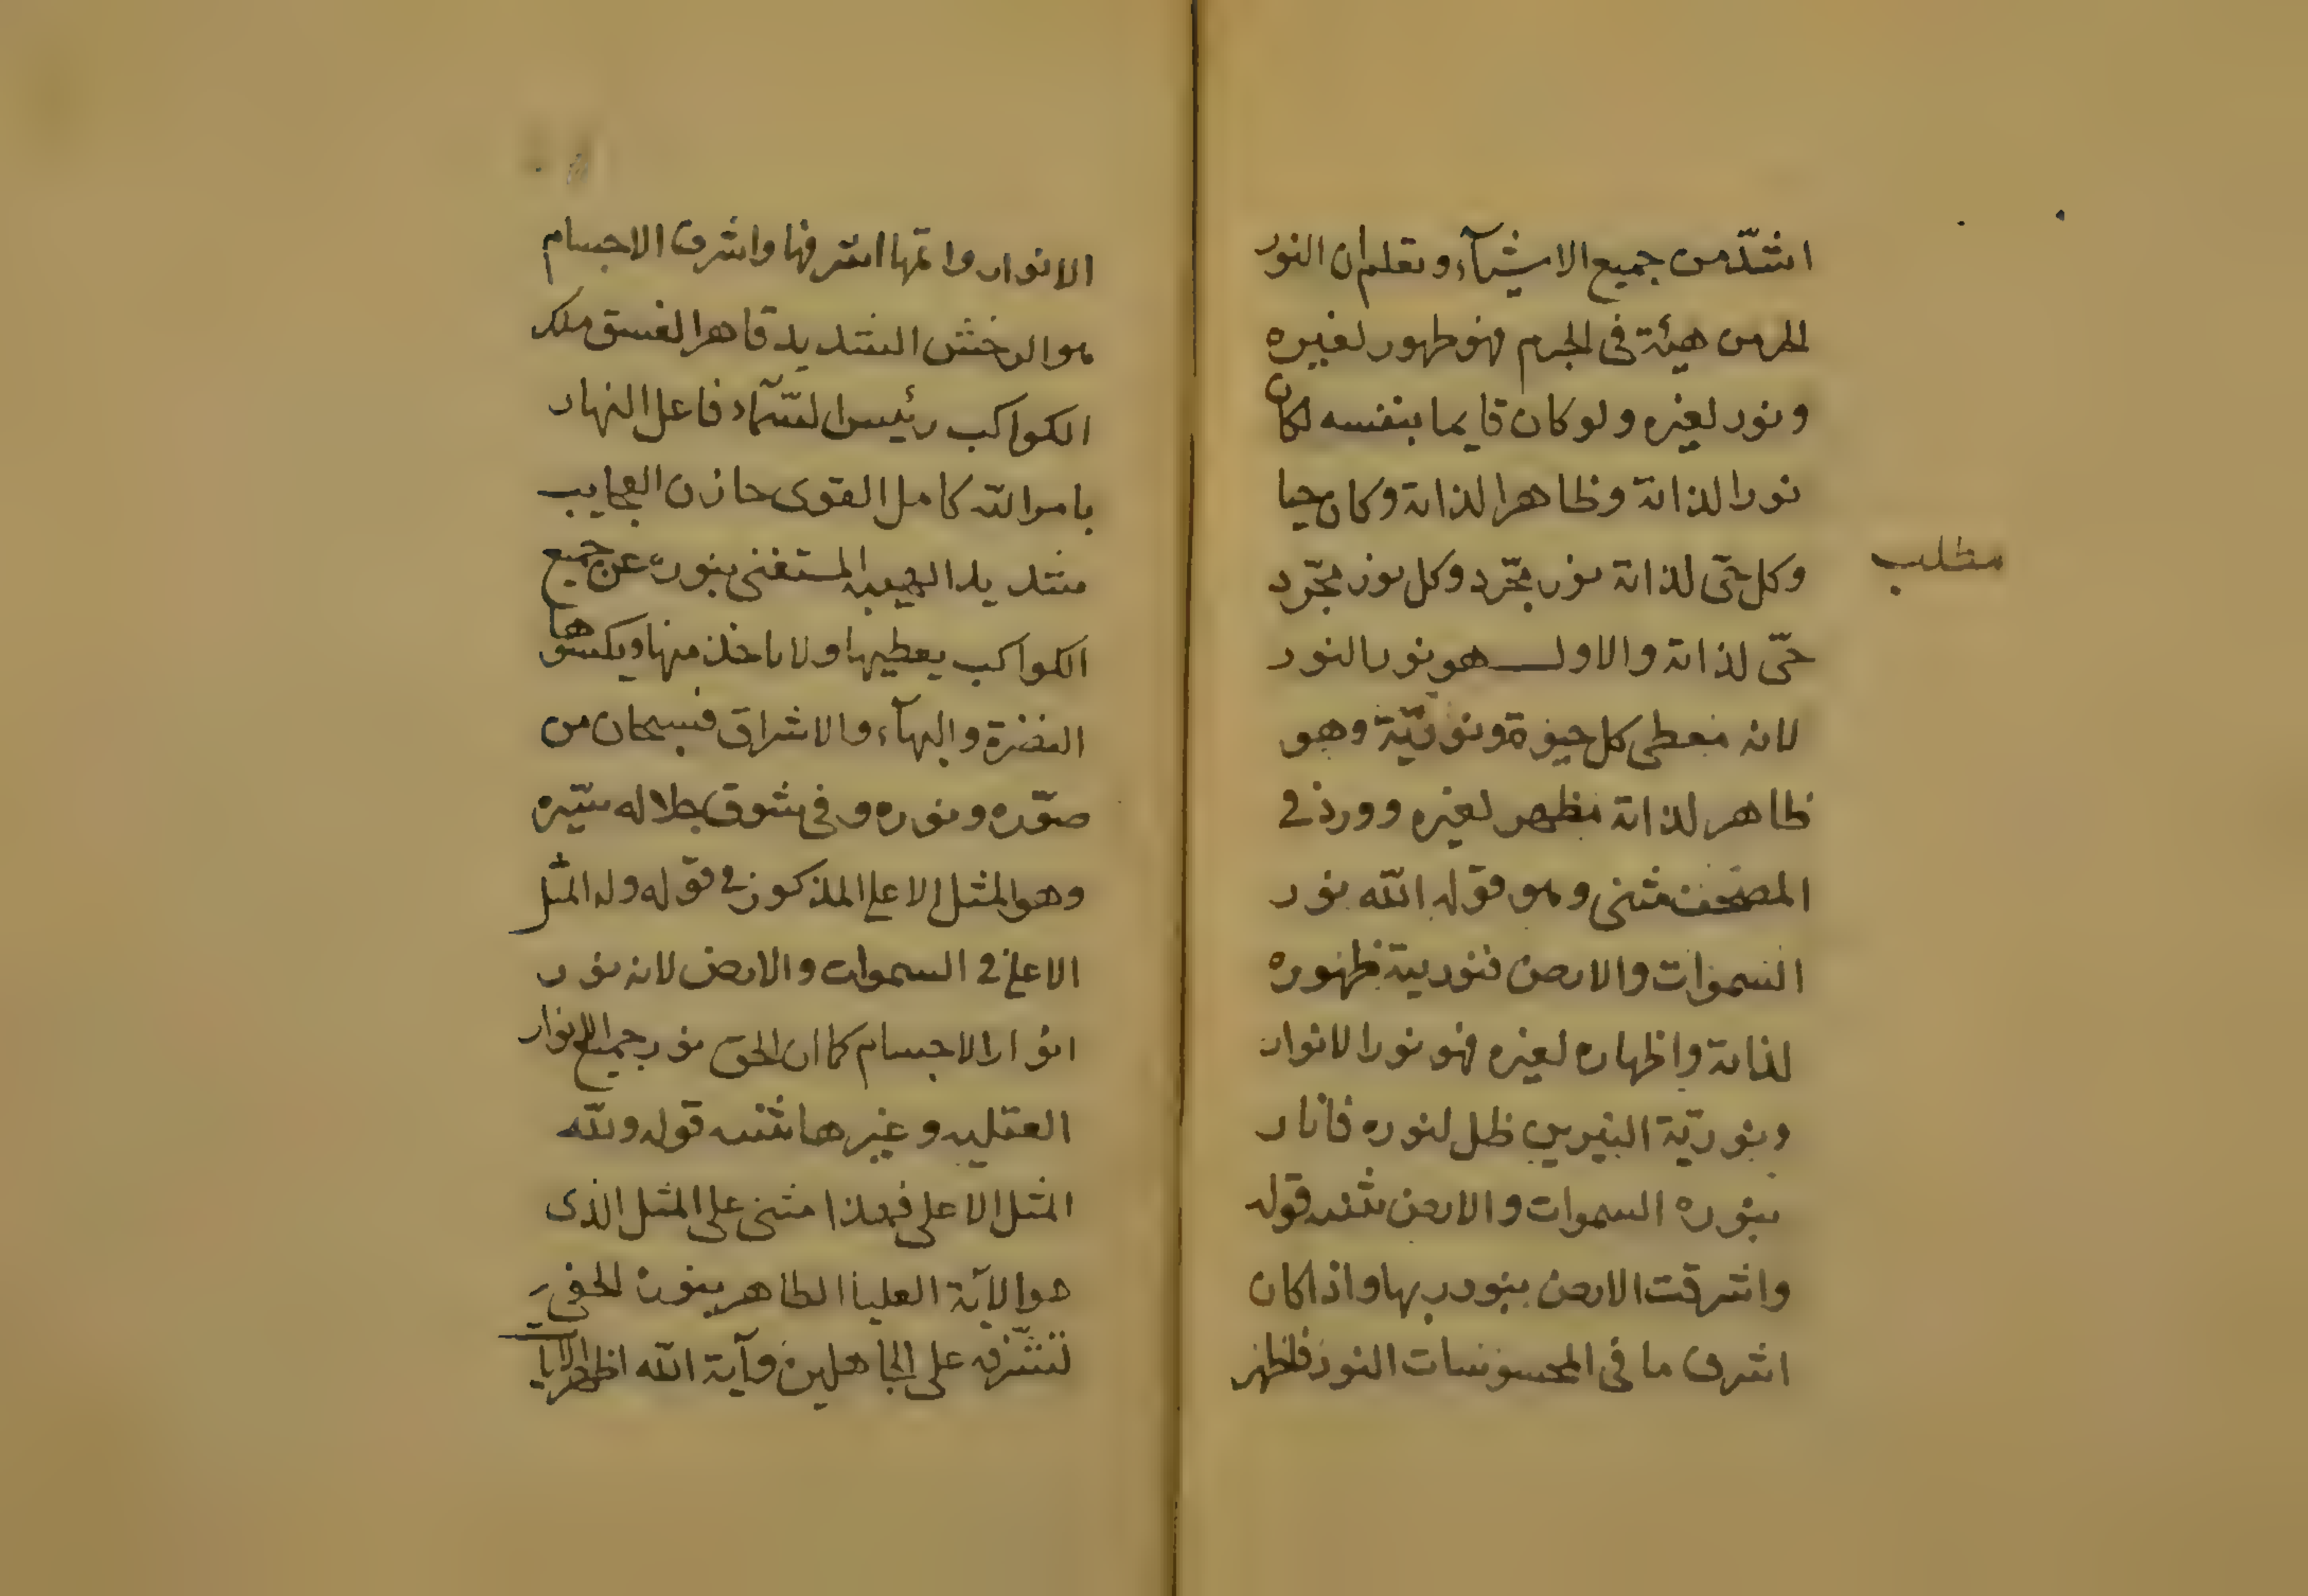 اشدّ من جميع الاشيآء وتعلم ان النور
العرض هيئة فى الجرم فهو ظهور لغيره
ونور لغيره ولو كان قايما بنفسه لكان
نورا لذاته وظاهرا لذاته وكان حيا
مطلب
وكل حّى لذاته نور مجرّد وكل نور مجرّد
حّى لذاته والاول هو نور النور
لانه معطى كل حيوة ونوريّة وهو
ظاهر لذاته مظهر لغيره وورد فى
المصحف مثنى وهو قوله الله نور
السموات والارض فنوريته ظهوره
لذاته واظهاره لغيره فهو نور الانوار
ونوريّة النيرين ظل لنوره فانار
بنوره السموات والارض قوله
واشرقت الارض بنور ربها واذا كان
اشرف ما فى المحسوسات النور فاظهر
الانوار واتمها اشرفها واشرف الاجسام
هو الرخش الشديد قاهر الغسق ملك
الكواكب رئيس السّمآء فاعل النهار
بامر الله كامل القوى حازن العجايب
شديد الهيبه المستغنى بنوره عن جميع
الكواكب يعطيها ولا ياخذ منها ويكسوها
النضرة والبهآء والاشراق فسبحان من
صوّره ونوره وفى شوق جلاله سيّره
وهو المثل الاعلى المذكور فى قوله وله المثل
الاعلى فى السموات والارض لانه نور
انوار الاجسام كما ان الحق نور جميع الانوار
العقليه وغيرها قوله ولله
المثل الاعلى فهذا مثنى على المثل الذى
هو الآية العليا الظاهر بنوره الخفى
لتشرّفه على الجاهلين وآية الله اظهر الايا